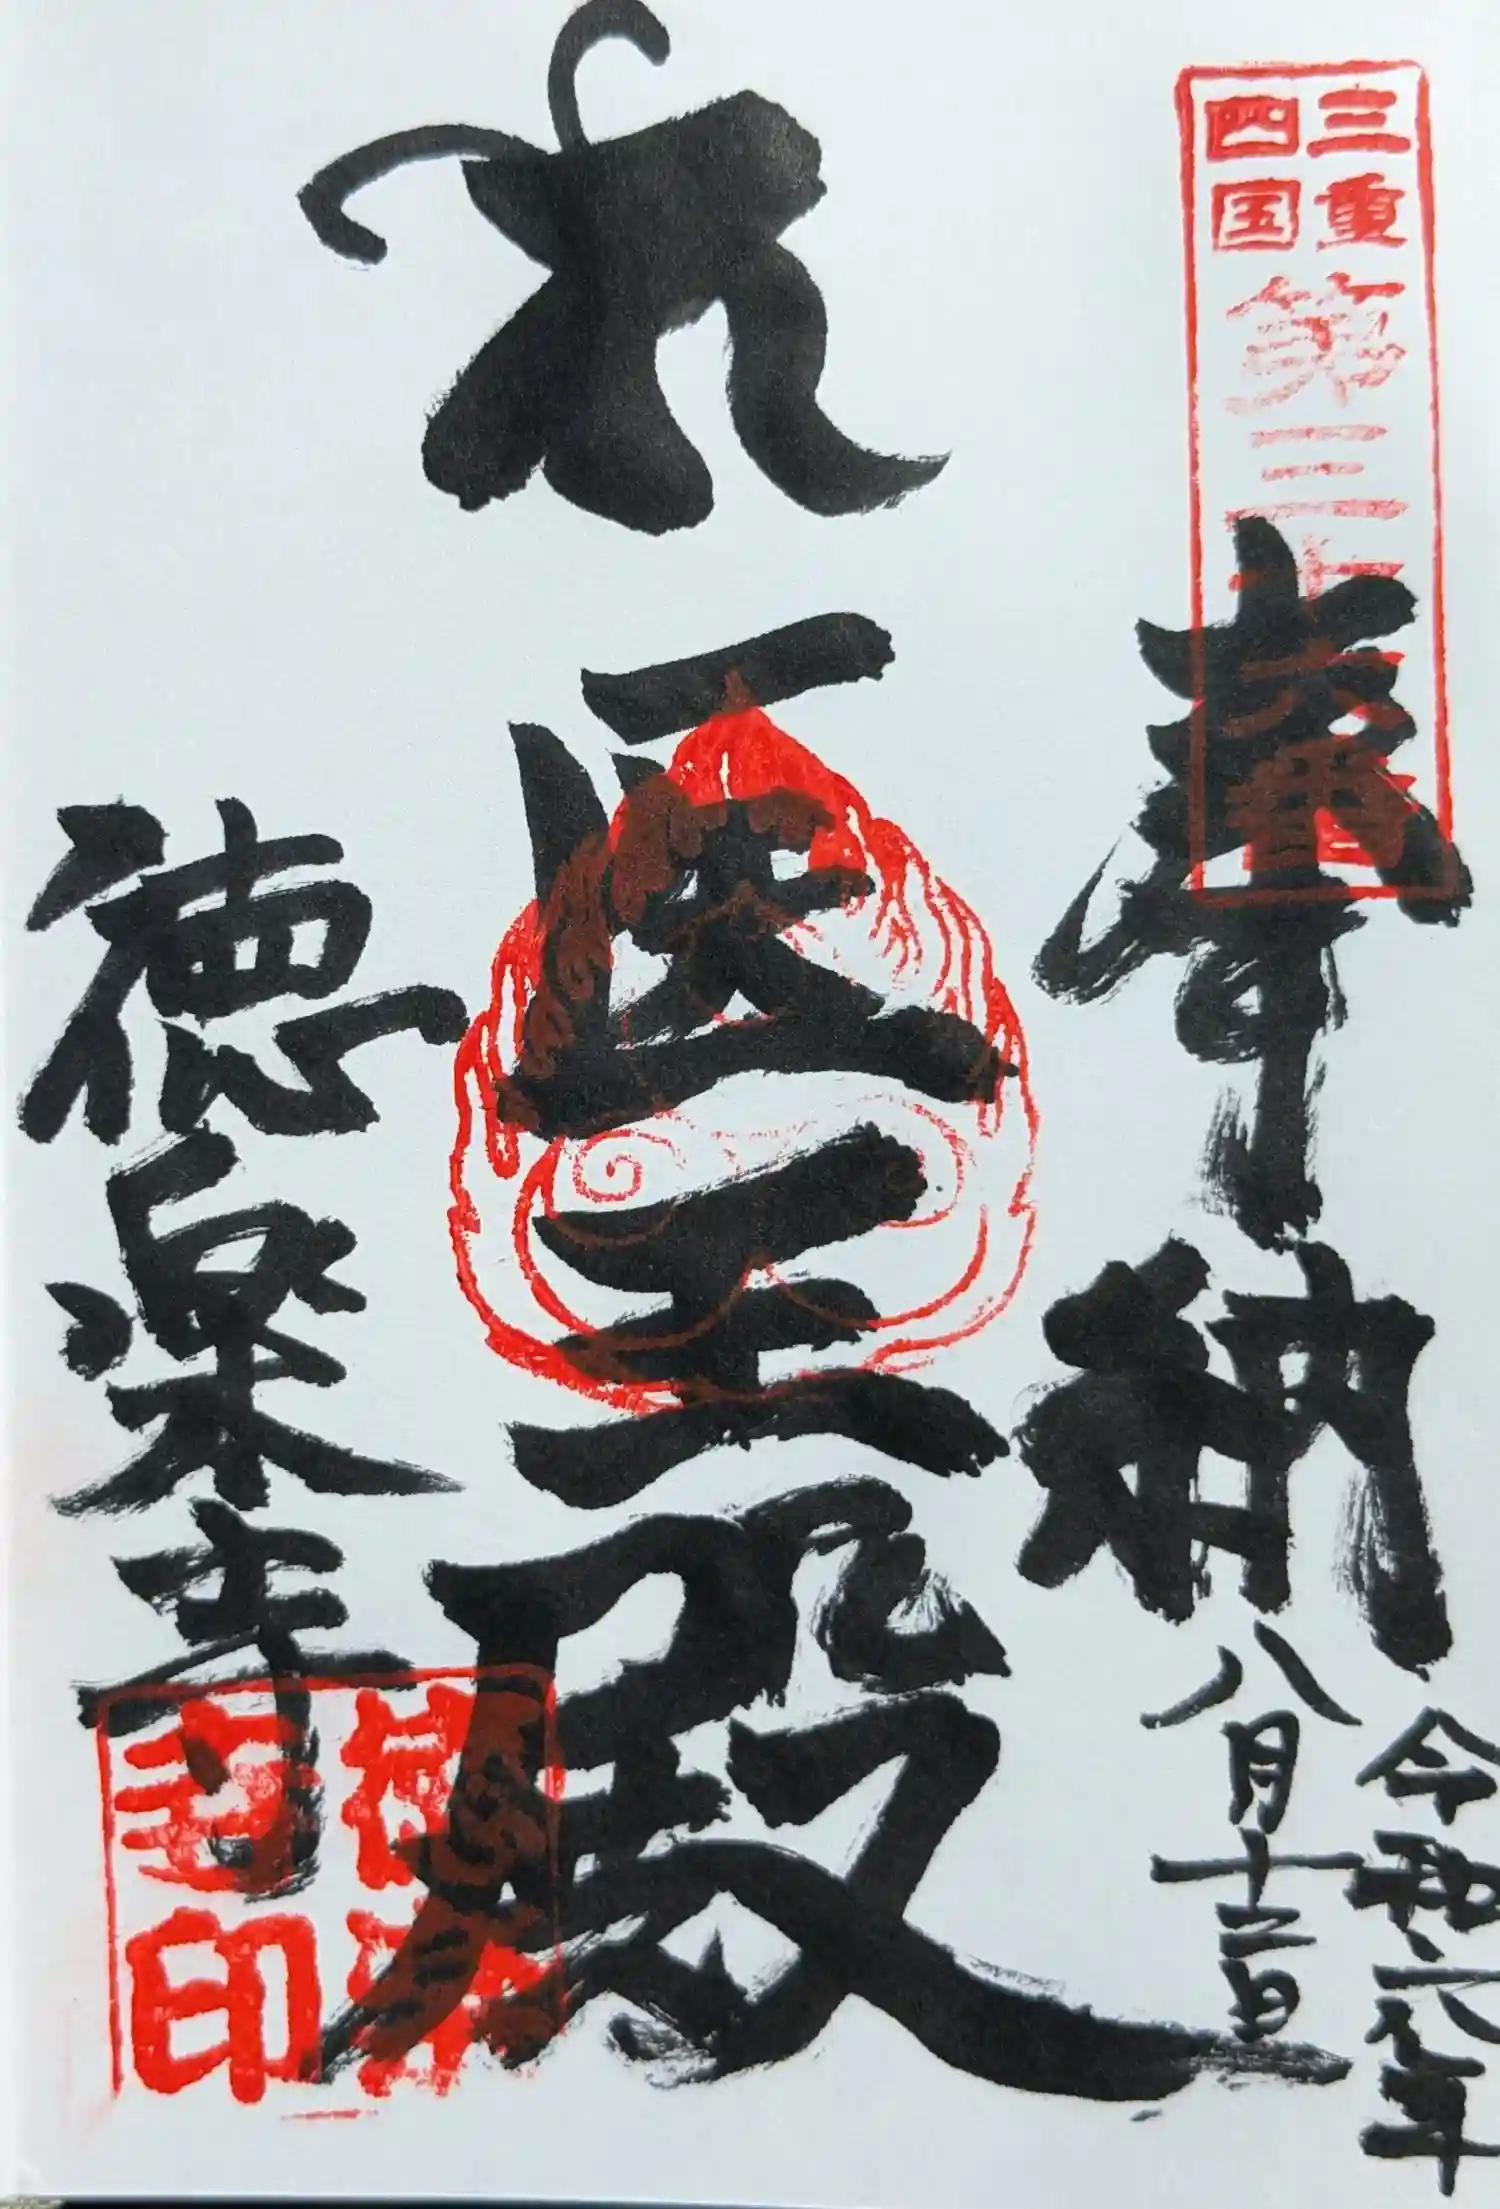 三重
四国
第三十六番
奉納
令和六年
八月十三日
医王殿
徳楽寺
徳楽
寺印